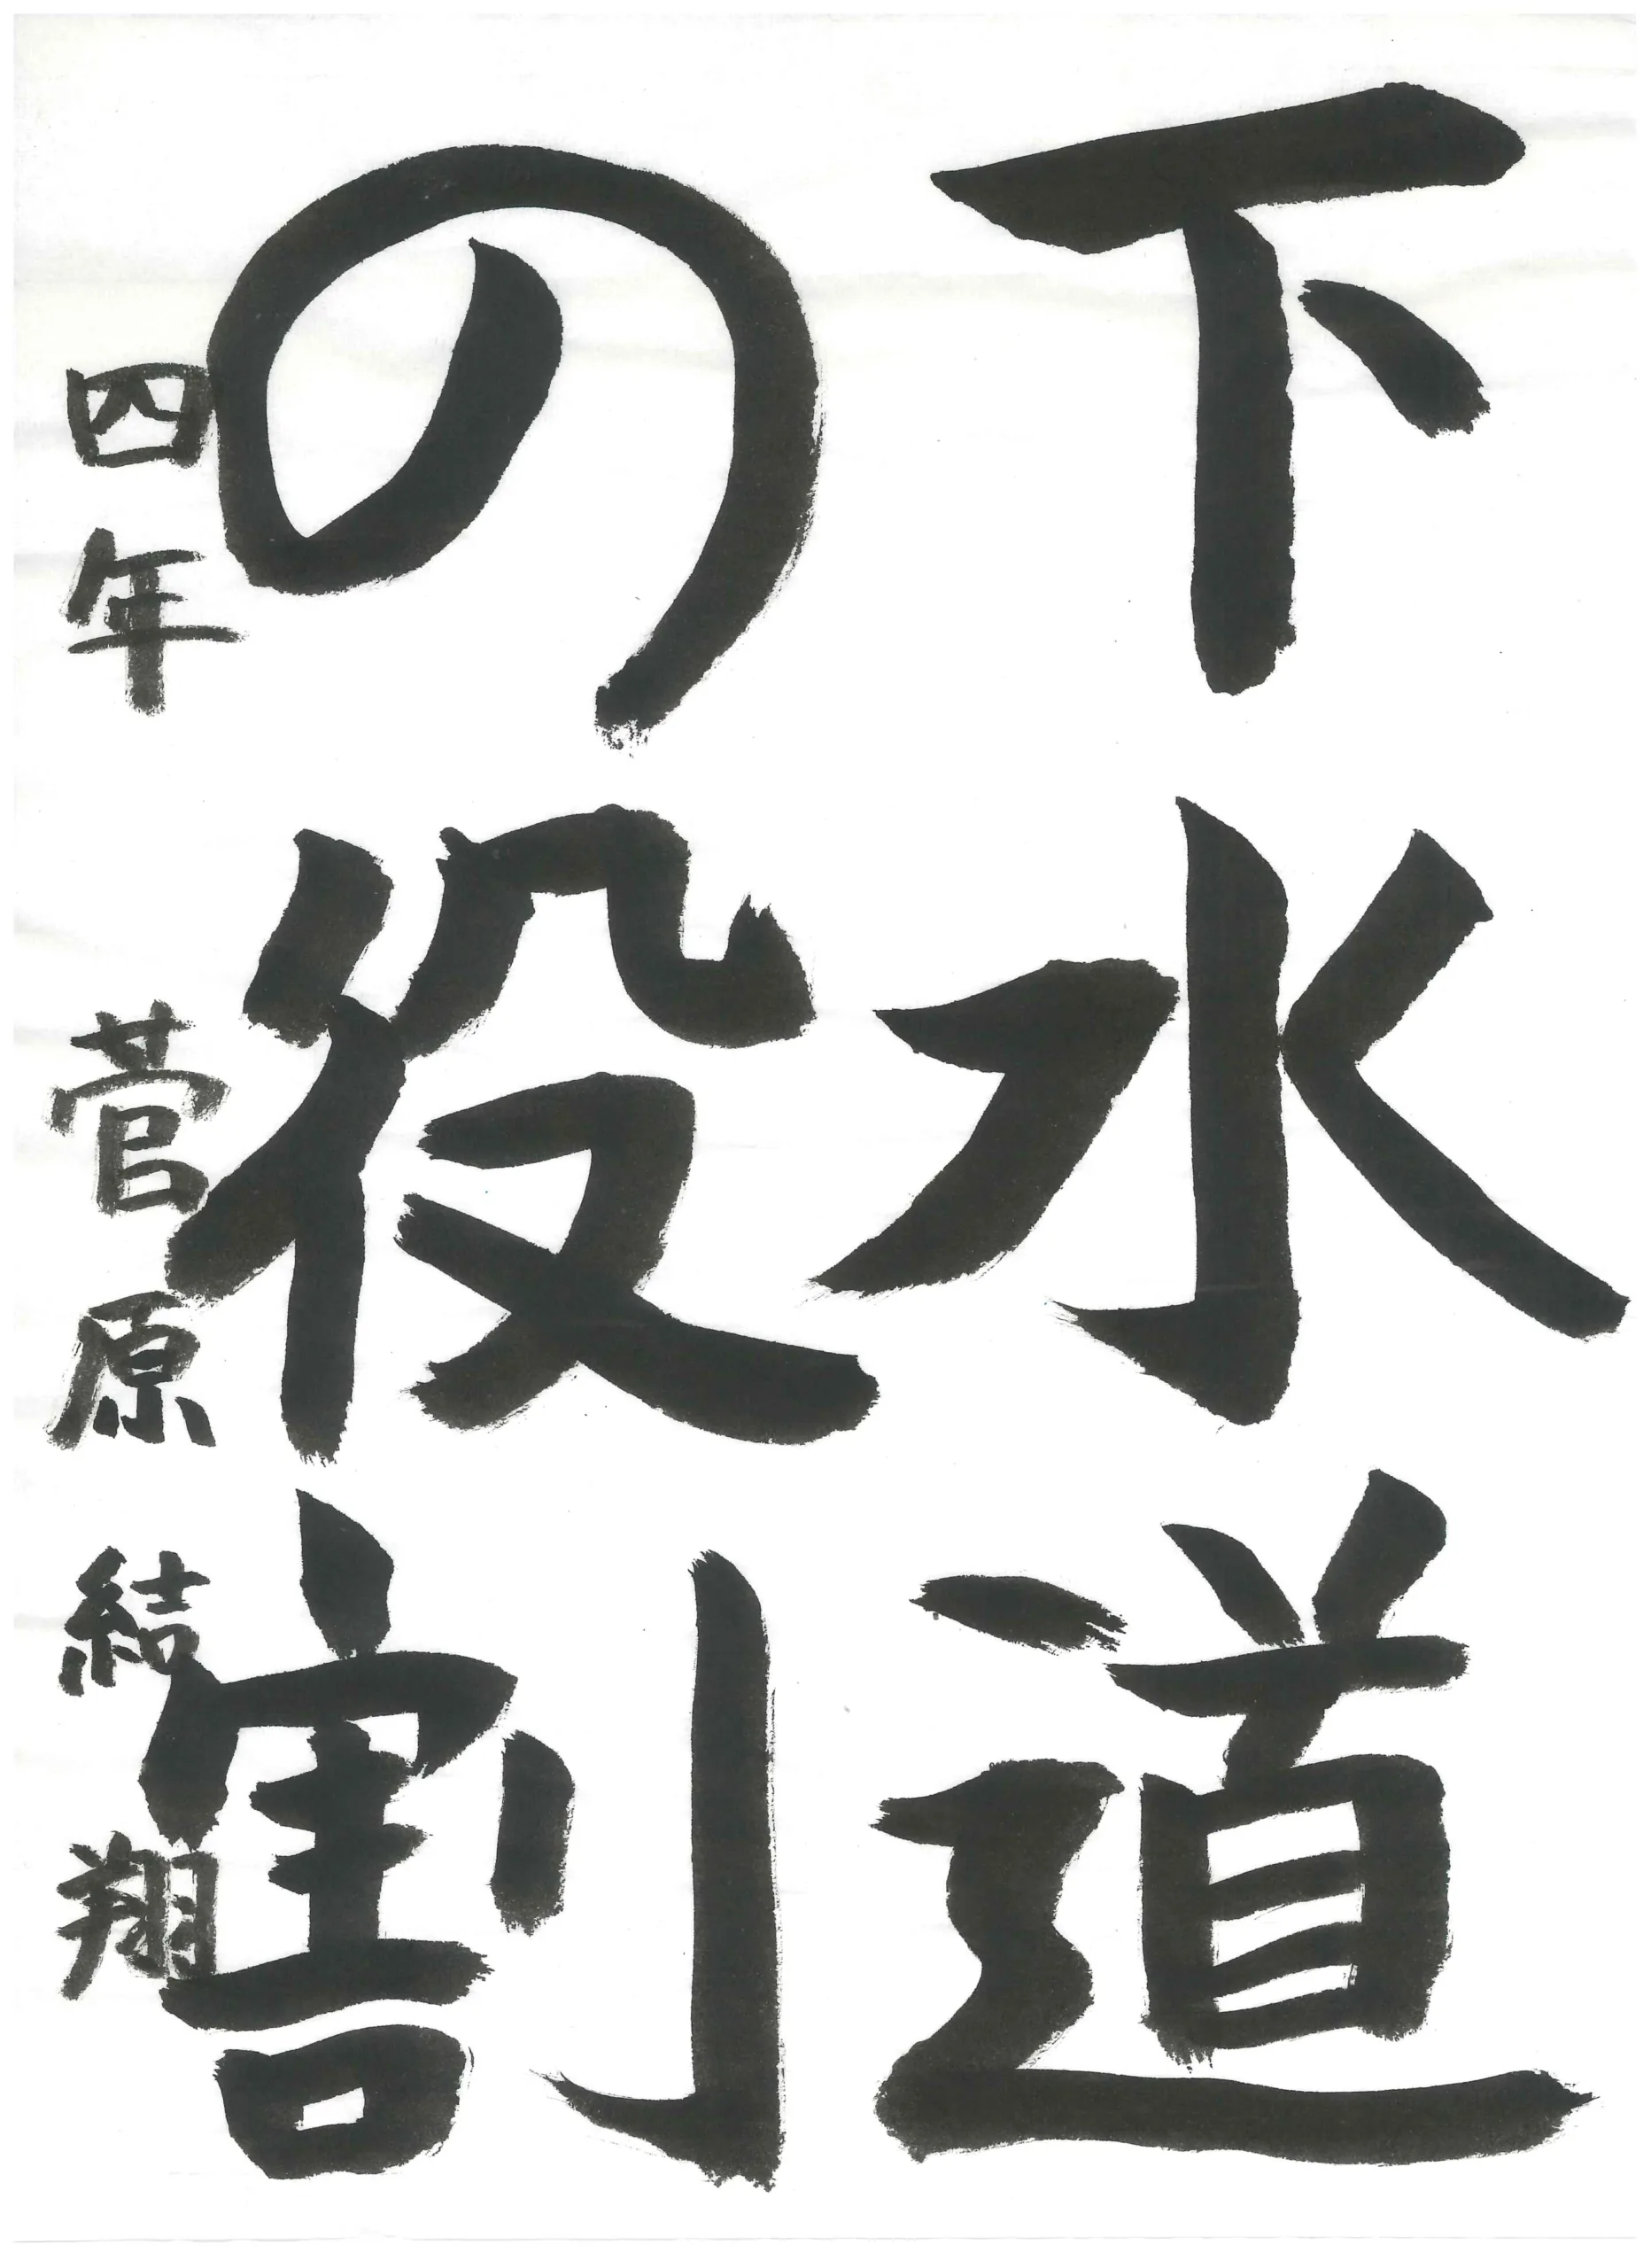 下水道
の役割
四年 菅原 結翔